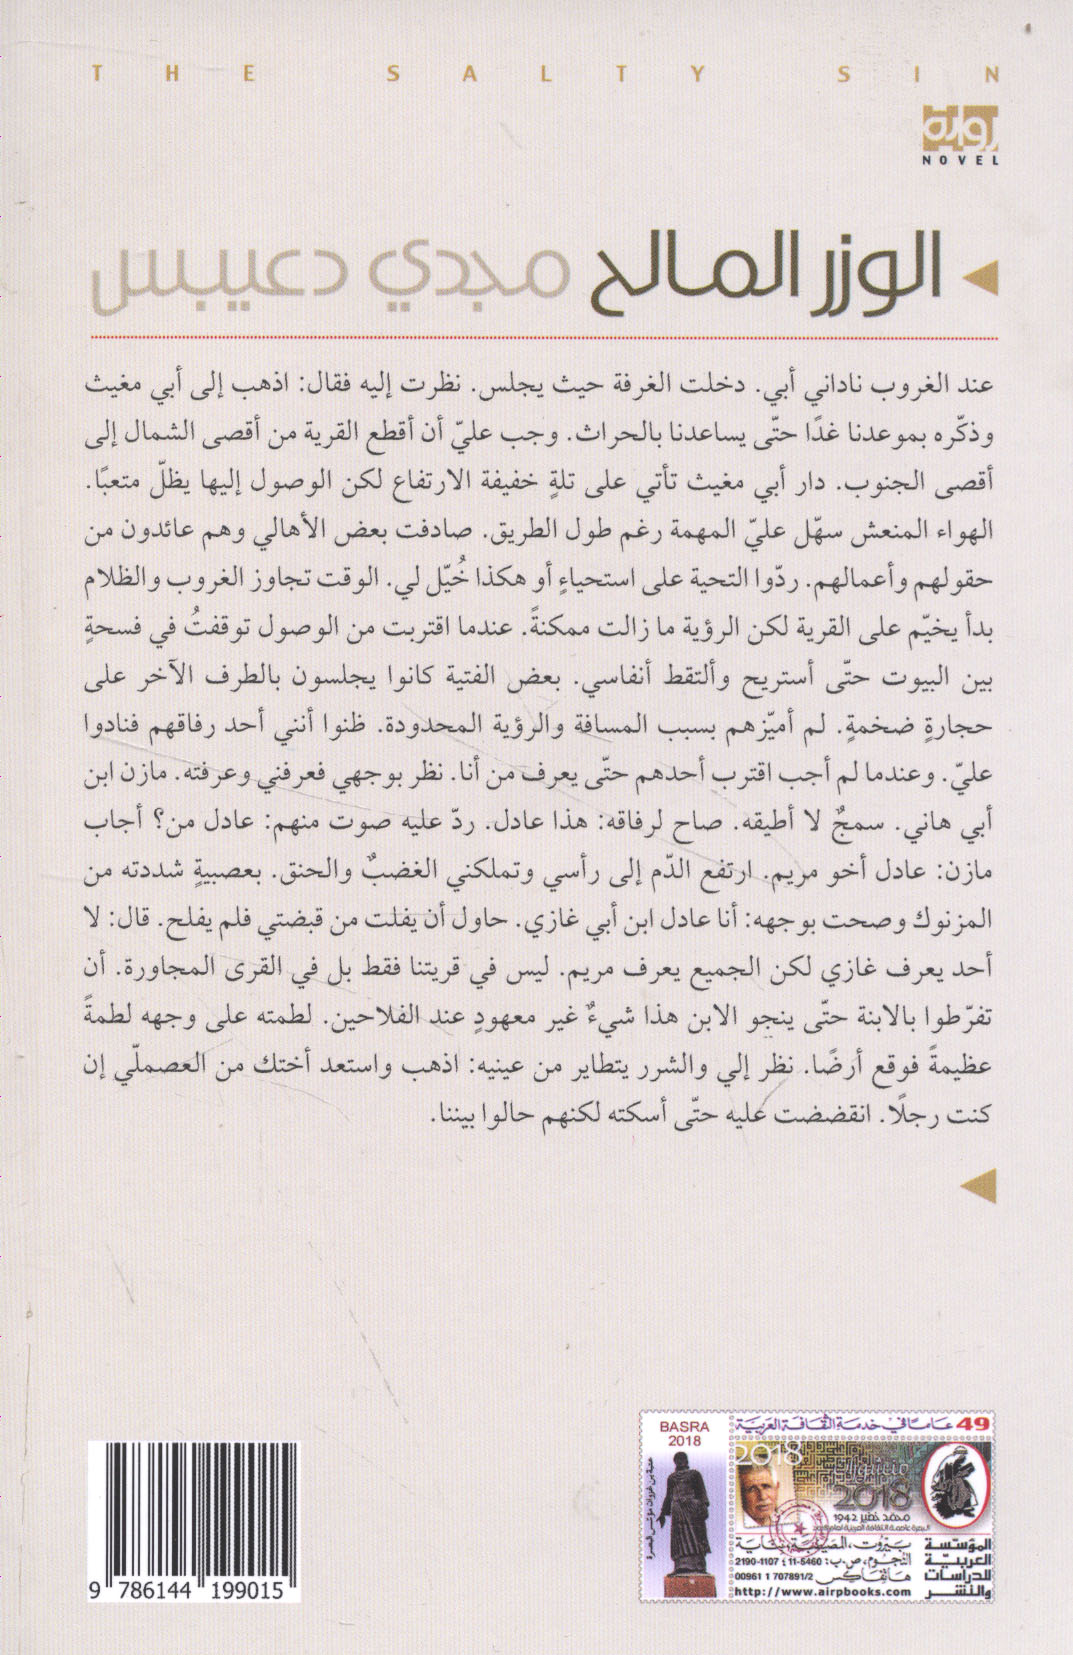 THE SALTY SIN
رواية
NOVEL
الوزر المالح مجدي دعيبس
عند الغروب ناداني أبي. دخلت الغرفة حيث يجلس. نظرت إليه فقال: اذهب إلى أبي مغيث
وذكّره بموعدنا غدًا حتّى يساعدنا بالحراث. وجب عليّ أن أقطع القرية من أقصى الشمال إلى
أقصى الجنوب. دار أبي مغيث تأتي على تلةٍ خفيفة الارتفاع لكن الوصول إليها يظلّ متعبًا.
الهواء المنعش سهّل عليّ المهمة رغم طول الطريق. صادفت بعض الأهالي وهم عائدون من
حقولهم وأعمالهم. ردّوا التحية على استحياءٍ أو هكذا خُيّل لي. الوقت تجاوز الغروب والظلام
بدأ يخيّم على القرية لكن الرؤية ما زالت ممكنةً. عندما اقتربت من الوصول توقفتُ في فسحةٍ
بين البيوت حتّى أستريح وألتقط أنفاسي. بعض الفتية كانوا يجلسون بالطرف الآخر على
حجارةٍ ضخمةٍ. لم أميّزهم بسبب المسافة والرؤية المحدودة. ظنوا أنني أحد رفاقهم فنادوا
عليّ. وعندما لم أجب اقترب أحدهم حتّى يعرف من أنا. نظر بوجهي فعرفني وعرفته. مازن ابن
أبي هاني. سمجٌ لا أطيقه. صاح لرفاقه: هذا عادل. ردّ عليه صوت منهم: عادل من؟ أجاب
مازن: عادل أخو مريم. ارتفع الدّم إلى رأسي وتملكني الغضبٌ والحنق. بعصبيةٍ شددته من
المزنوك وصحت بوجهه: أنا عادل ابن أبي غازي. حاول أن يفلت من قبضتي فلم يفلح. قال: لا
أحد يعرف غازي لكن الجميع يعرف مريم. ليس في قريتنا فقط بل في القرى المجاورة. أن
تفرّطوا بالابنة حتّى ينجو الابن هذا شيءٌ غير معهودٍ عند الفلاحين. لطمته على وجهه لطمةً
عظيمةً فوقع أرضًا. نظر إلي والشرر يتطاير من عينيه: اذهب واستعد أختك من العصملّي إن
كنت رجلًا. انقضضت عليه حتّى أسكته لكنهم حالوا بيننا.
9 786144 199015
BASRA
2018
عتبة بن غزوان مؤسس البصرة
49 عامًا في خدمة الثقافة العربية
2018
2018
محمد خضير 1942
البصرة عاصمة الثقافة العربية لعام 2018
المؤسّسة
العربيّة
للدراسات
والنشر
بيروت، المصيطبة، بناية
النجوم، ص.ب: 11-5460؛ 1107-2190
هاتفاكس 00961 1 707891/2
http://www.airpbooks.com